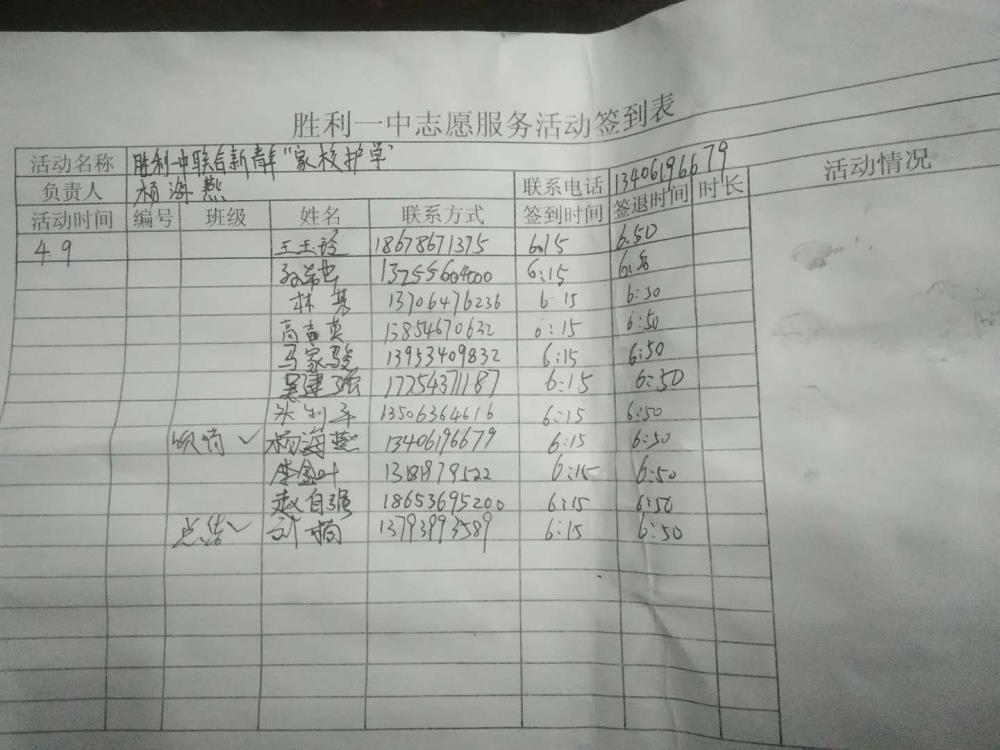 胜利一中志愿服务活动签到表
活动名称 胜利一中联合新青年"家校护学" 活动情况
负责人 杨海燕 联系电话 13406196679
活动时间 编号 班级 姓名 联系方式 签到时间 签退时间 时长
4.9 王玉玲 18678671375 6:15 6:50
13255604000 6:15
林 6:15 6:30
高 13854670632 6:15 6:50
13706476236
马家骏 13953409832 6:15 6:50
吴建强 17254371187 6:15 6:50
13506364616 6:15 6:50
杨海燕 13406196679 6:15 6:50
李金叶 6:15 6:50
赵自强 18653695200 6:15 6:50
总结 刘楠 13793993589 6:15 6:50